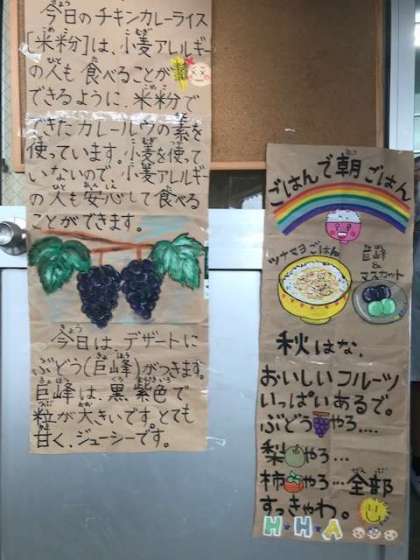 今日のチキンカレーライス
[米粉]は、小麦アレルギー
の人も食べることが
できるように、米粉で
できたカレールウの素を
使っています。小麦を使って
いないので、小麦アレルギー
の人も安心して食べる
ことができます。
今日は、デザートに
ぶどう(巨峰)がつきます。
巨峰は、黒紫色で
粒が大きいです。とても
甘く、ジューシーです。
ごはんで朝ごはん
ツナマヨごはん
巨峰
&
マスカット
秋はな、
おいしいフルーツ
いっぱいあるで。
ぶどうやろ....
梨やろ...
柿やろ...全部
すっきゃわ。
H★H★A